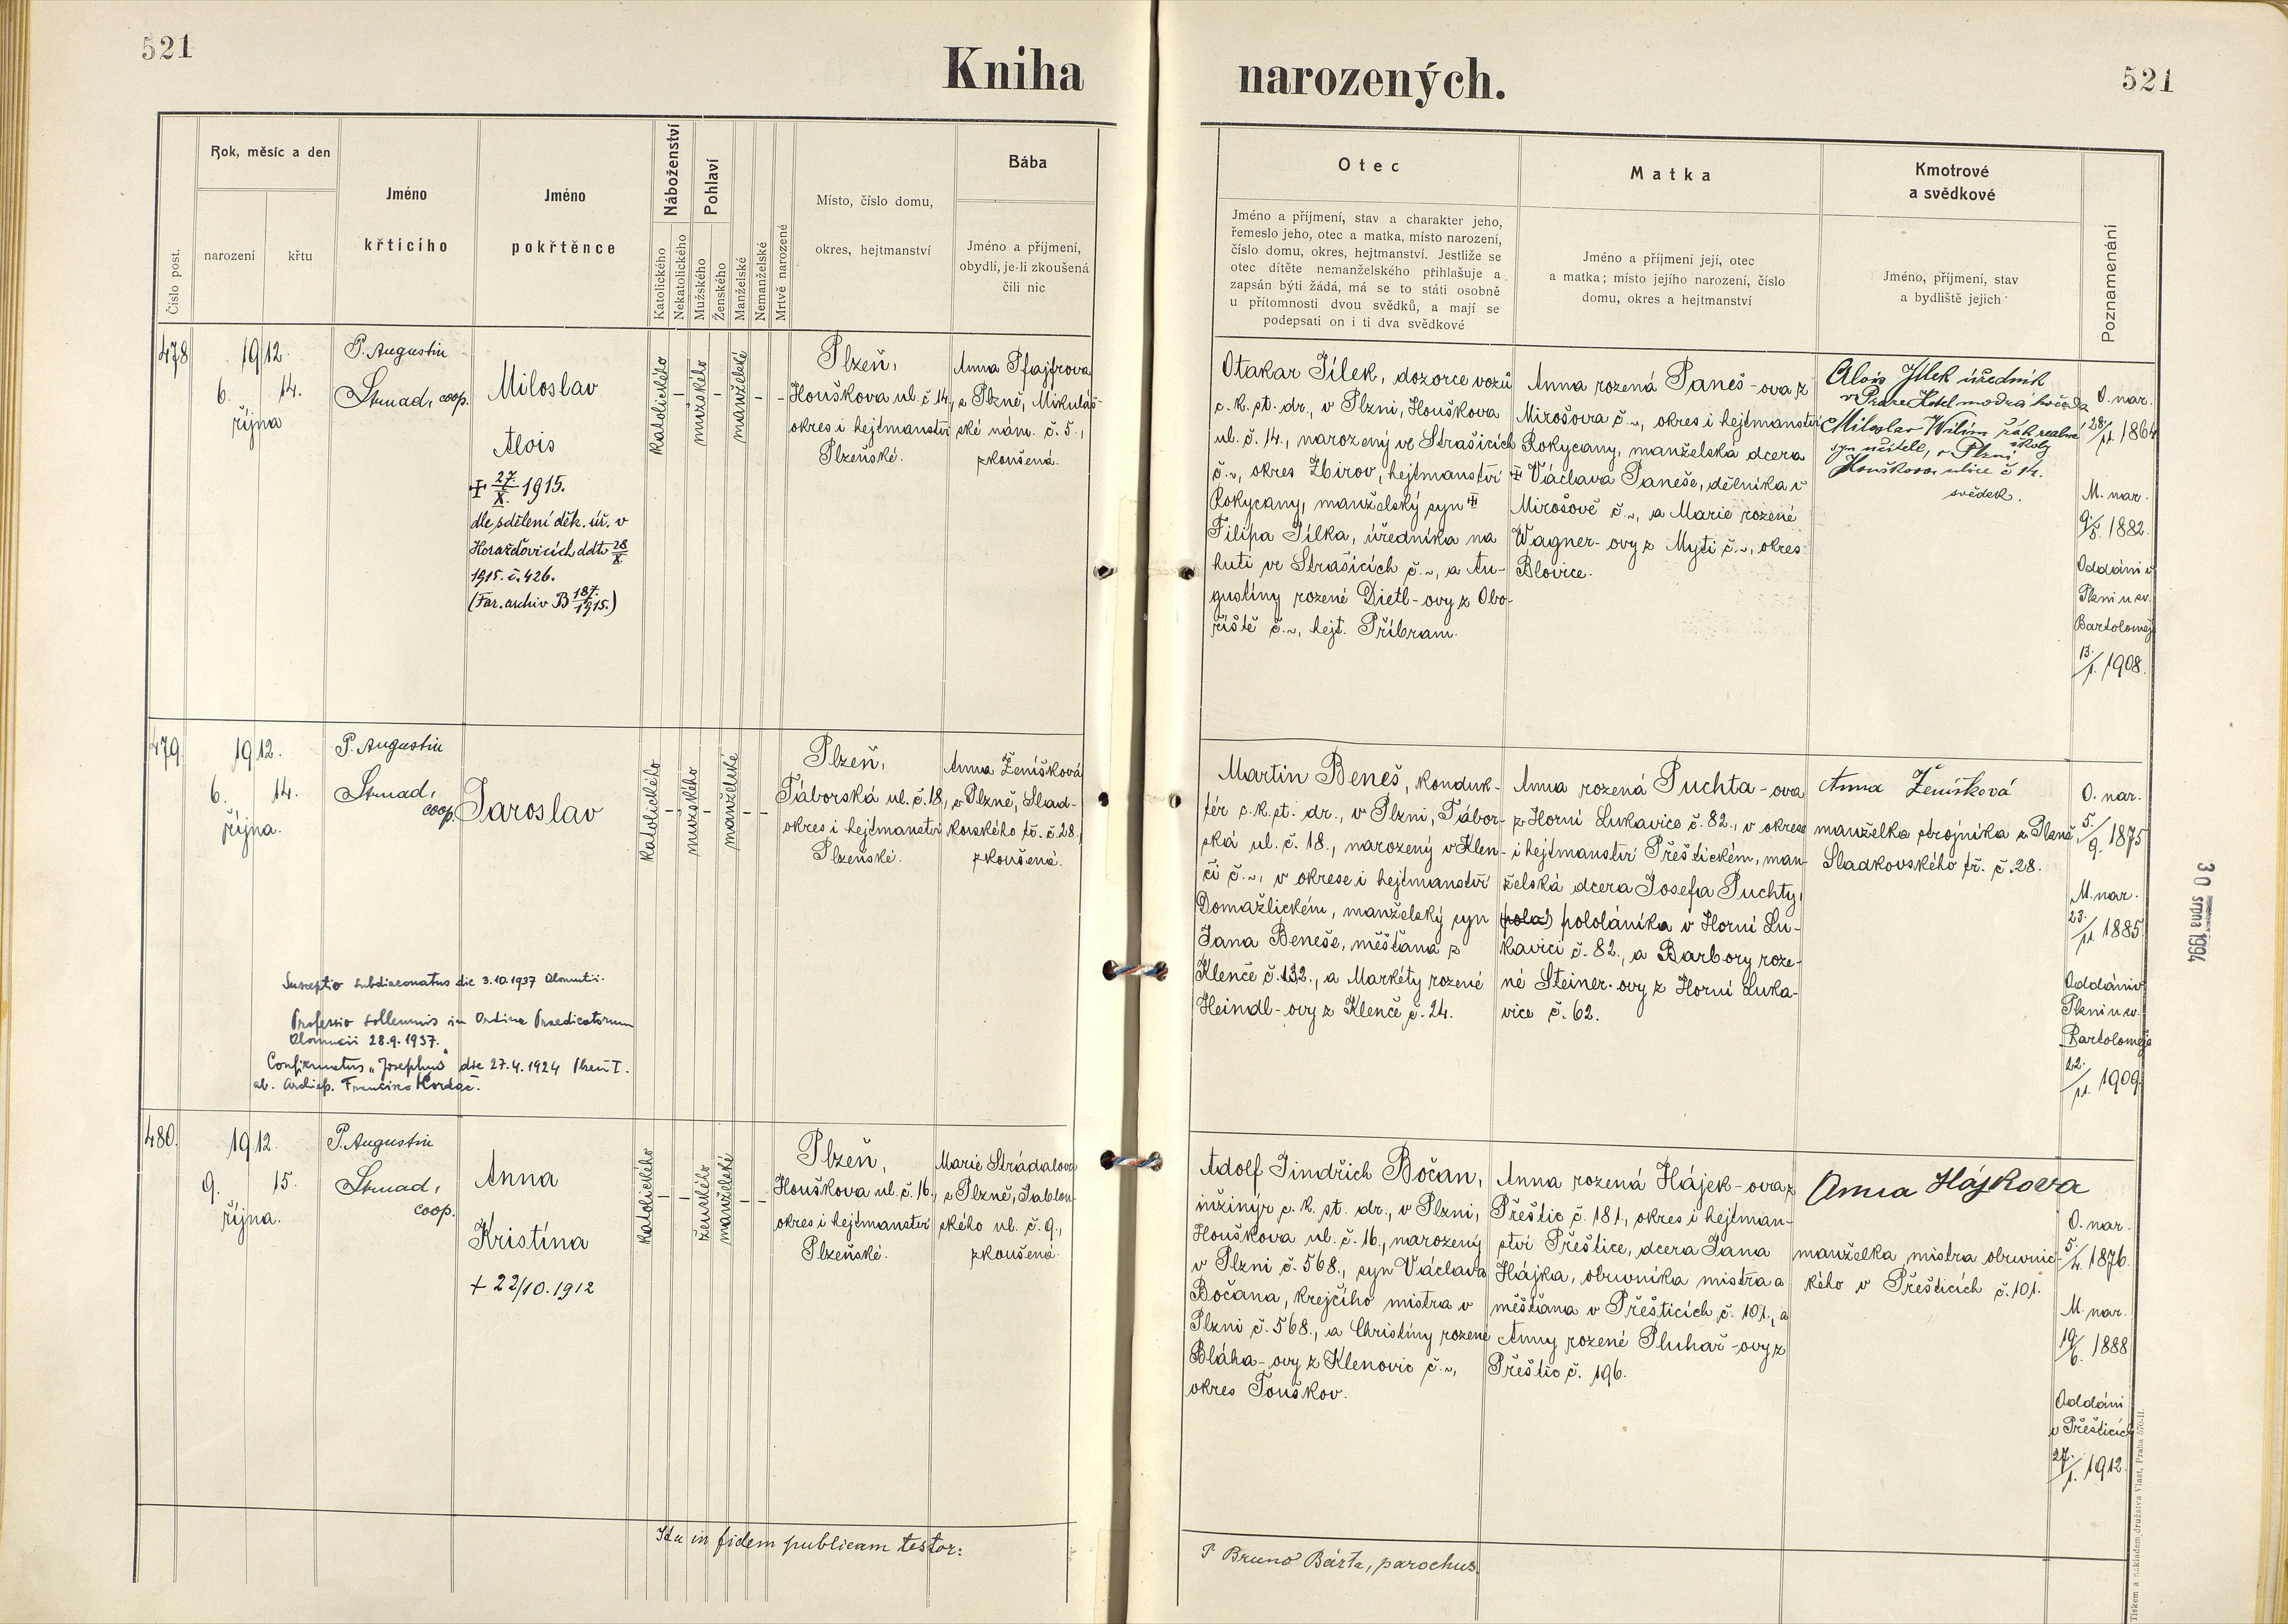 521
Kniha narozených.
521
Číslo post.
Rok, měsíc a den
narození
křtu
Jméno
křtícího
Jméno
pokřtěnce
Náboženství
Katolického
Nekatolického
Pohlaví
Mužského
Ženského
Manželské
Nemanželské
Mrtvě narozené
Místo, číslo domu,
okres, hejtmanství
Bába
Jméno a příjmení,
obydlí, je-li zkoušená
čili nic
Otec
Jméno a příjmení, stav a charakter jeho,
řemeslo jeho, otec a matka, místo narození,
číslo domu, okres, hejtmanství. Jestliže se
otec dítěte nemanželského přihlašuje a
zapsán býti žádá, má se to státi osobně
u přítomnosti dvou svědků, a mají se
podepsati on i ti dva svědkové
Matka
Jméno a příjmení její, otec
a matka; místo jejího narození, číslo
domu, okres a hejtmanství
Kmotrové
a svědkové
Jméno, příjmení, stav
a bydliště jejich
Poznamenání
478
1912.
6. 14.
října
P. Augustin
Strnad, coop.
Miloslav
Alois
‡ 27./X. 1915.
dle sdělení děk. úř. v
Horažďovicích ddto 28/X.
1915. č. 426.
(Far. archiv B 187./1915.)
katolického
–
mužského
–
manželské
–
–
Plzeň,
Houškova ul. č. 14,
okres i hejtmanství
Plzeňské.
Anna Pfajfrova
z Plzně, Mikuláš-
ské nám. č. 5.,
zkoušená.
Otakar Jílek, dozorce vozů
c. k. st. dr., v Plzni, Houškova
ul. č. 14., narozený ve Strašicích
č. ~, okres Zbirov, hejtmanství
Rokycany, manželský syn ‡
Filipa Jílka, úředníka na
huti ve Strašicích č. ~, a Au-
gustiny rozené Dietl-ovy z Obo-
řiště č. ~, hejt. Příbram.
Anna rozená Paneš-ova z
Mirošova č. ~, okres i hejtmanství
Rokycany, manželská dcera
‡ Václava Paneše, dělníka v
Mirošově č. ~, a Marie rozené
Wagner-ovy z Mýti č. ~, okres
Blovice.
Alois Jílek úředník
v Praze Hotel modrá hvězda
Miloslav Wilím žák realné
školy
syn učitele, v Plzni
Houškova ulice č 14.
svědek.
O. nar.
28/11. 1864
M. nar.
9./5. 1882.
Oddáni v
Plzni u sv.
Bartoloměje
13./1. 1908.
479.
1912.
6. 14.
října.
P. Augustin
Strnad,
coop.
Jaroslav
Susceptio subdiaconatus die 3.10.1937 Olomutii.
Professio sollemnis in Ordine Praedicatorum
Olomucii 28.9.1937.
Confirmatus "Josephus" die 27.4.1924 Plzeň I.
ab. Archiep. Francisco Kordač.
katolického
–
mužského
–
manželské
–
–
Plzeň,
Táborská ul. č. 18,
okres i hejtmanství
Plzeňské.
Anna Ženíšková
v Plzně, Slad-
kovského tř. č. 28.
zkoušená.
Martin Beneš, konduk-
tér c. k. st. dr., v Plzni, Tábor-
ská ul. č. 18., narozený v Klen-
čí č. ~, v okrese i hejtmanství
Domažlickém, manželský syn
Jana Beneše, měšťana z
Klenče č. 132., a Markéty rozené
Heindl-ovy z Klenče č. 24.
Anna rozená Puchta-ova
z Horní Lukavice č. 82., v okrese
i hejtmanství Přeštickém, man-
želská dcera Josefa Puchty,
(pola) pololáníka v Horní Lu-
kavici č. 82., a Barbory roze-
né Steiner-ovy z Horní Luka-
vice č. 62.
Anna Ženíšková
manželka strojníka z Plzně,
Sladkovského tř. č. 28.
O. nar.
5./9. 1875
M. nar.
23./11. 1885
Oddáni v
Plzni u sv.
Bartoloměje
22./11. 1909.
30 srpna 1994
480.
1912.
9. 15.
října.
P. Augustin
Strnad,
coop.
Anna
Kristína
+ 22/10.1912
katolického
–
–
ženského
manželské
–
–
Plzeň,
Houškova ul. č. 16.,
okres i hejtmanství
Plzeňské.
Marie Strádalova
z Plzně, Jablon-
ského ul. č. 9.,
zkoušená.
Adolf Jindřich Bočan,
inžinýr c. k. st. dr., v Plzni,
Houškova ul. č. 16., narozený
v Plzni č. 568., syn Václava
Bočana, krejčího mistra v
Plzni č. 568., a Christiny rozené
Bláha-ovy z Klenovic č. ~,
okres Touškov.
Anna rozená Hájek-ova z
Přeštic č. 181., okres i hejtman-
ství Přeštice, dcera Jana
Hájka, obuvníka mistra a
měšťana v Přešticích č. 101., a
Anny rozené Pluhař-ovy z
Přeštic č. 196.
Anna Hájkova
manželka mistra obuvnic-
kého v Přešticích č. 101.
O. nar.
5./4. 1876.
M. nar.
19/6. 1888
Oddáni
v Přešticích
27./1. 1912.
Ita in fidem publicam testor:
P Bruno Bárta, parochus.
Tiskem a nákladem družstva Vlast, Praha 570-II.